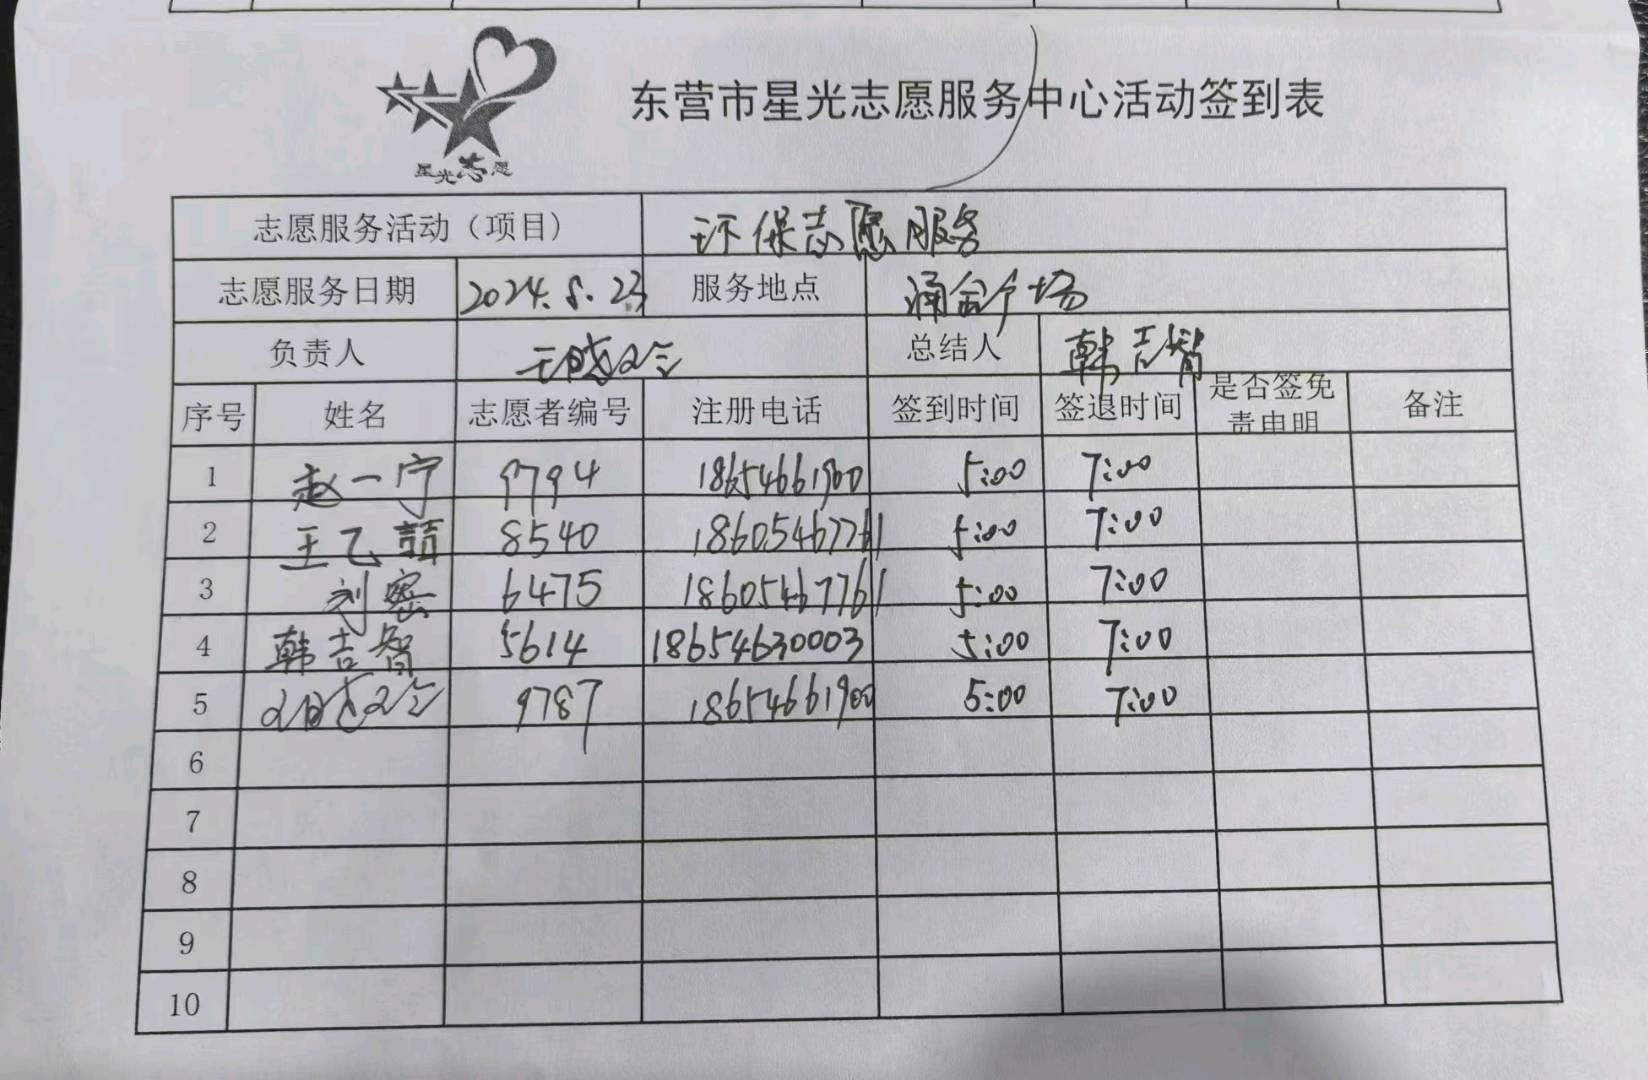 星光志愿
东营市星光志愿服务中心活动签到表
志愿服务活动（项目） 环保志愿服务
志愿服务日期 2024.8.23 服务地点 涌金广场
负责人 总结人 韩吉智
序号 姓名 志愿者编号 注册电话 签到时间 签退时间 是否签免责申明 备注
1 赵一宁 9794 18654661900 5:00 7:00
2 王乙喆 8540 18605467761 5:00 7:00
3 刘密 6475 18605467761 5:00 7:00
4 韩吉智 5614 18654630003 5:00 7:00
5 9787 18654661900 5:00 7:00
6
7
8
9
10